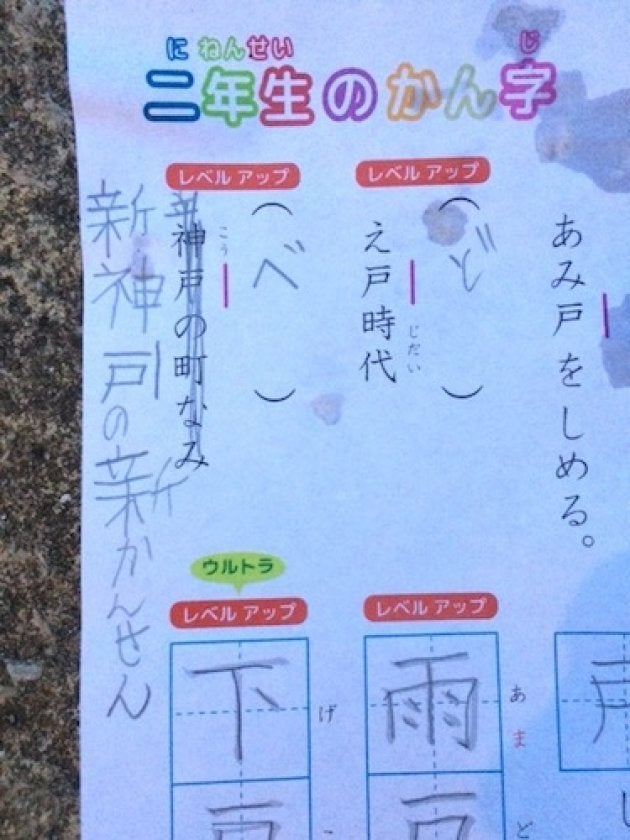 に ねんせい じ
二年生のかん字
あみ戸をしめる。
レベル アップ
(ど)
え戸時代
じだい
レベル アップ
(べ)
こう
神戸の町なみ
新
新神戸の新かんせん
レベル アップ
雨
あま
戸
ど
ウルトラ
レベル アップ
下
げ